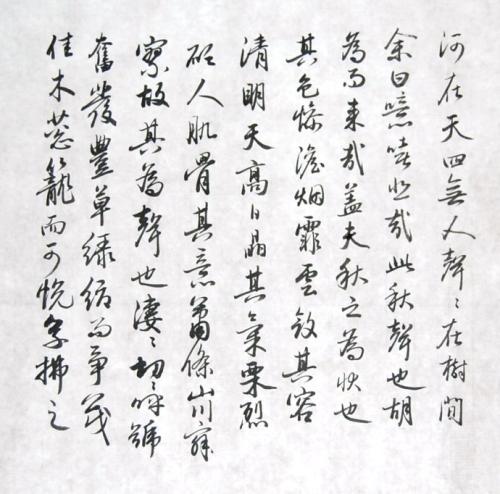 河在天四無人聲〻在樹間
余曰噫嘻悲哉此秋聲也胡
為而來哉蓋夫秋之為狀也
其色慘澹烟霏雲斂其容
清明天高日晶其氣栗烈
砭人肌骨其意蕭條山川寂
寥故其為聲也淒〻切〻呼號
奮發豐草綠縟而爭茂
佳木蔥籠而可悅草拂之